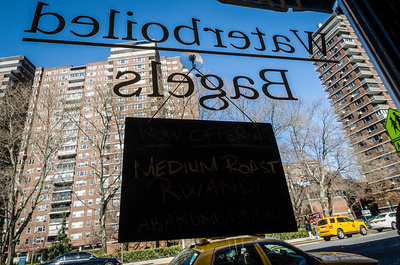 Waterboiled
Bagels
NOW OFFERING
MEDIUM ROAST
RWANDA
ABAKUNDAKAWA